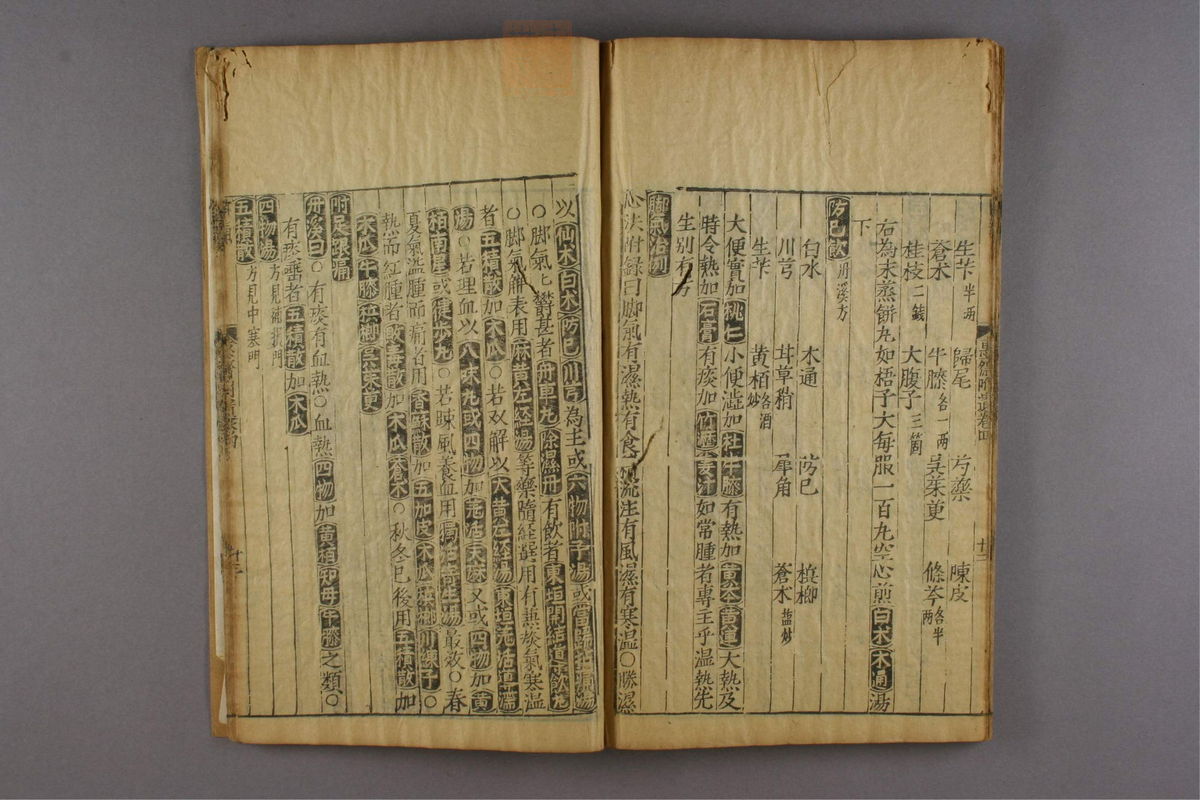 生芐半兩 歸尾 芍藥 陳皮
蒼朮 牛膝各一兩 吳茱萸 條芩各半兩
桂枝二錢 大腹子三箇
右為末蒸餅丸如梧子大每服一百丸空心煎白朮木通湯
下
防已飲丹溪方
白朮 木通 防已 檳榔
川芎 甘草稍 犀角 蒼朮鹽炒
生芐 黃栢各酒炒
大便實加桃仁小便澁加杜牛膝有熱加黃芩黃連大熱及
時令熱加石膏有痰加竹瀝姜汁如常腫者專主乎温熱先
生别有方
脚氣治例
心法附錄曰脚氣有濕熱有食積流注有風濕有寒温○勝濕
以仙朮白朮防已川芎為主或六物附子湯或當歸拈痛湯
○脚氣七欝甚者舟車丸除濕丹有飲者東垣開結導飲丸
○脚氣解表用麻黃左經湯等藥隨經選用有熱欬氣寒温
者五積散加木瓜○若双解以大黃左經湯東垣羌活導滯
湯○若理血以八味丸或四物加羌活天麻又或四物加黃
栢南星或健步丸○若踈風養血用獨活寄生湯最效○春
夏氣溢腫而痛者用香蘇散加五加皮木瓜檳榔川練子○
熱而紅腫者敗毒散加木瓜蒼朮○秋冬已後用五積散加
木瓜牛膝檳榔吳茱萸
附足跟痛
丹溪曰○有痰有血熱○血熱四物加黃栢知母牛膝之類○
有痰壅者五積散加木瓜
四物湯方見補損門
五積散方見中寒門
十三